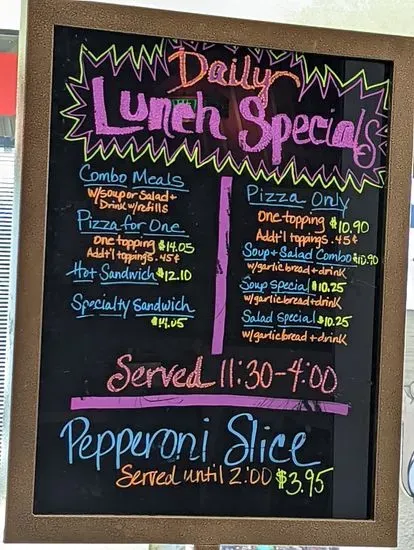 Daily
Lunch Specials
Combo Meals
w/soup or Salad +
Drink w/refills
Pizza for One
one topping $14.05
Addt'l toppings .45¢
Hot Sandwich $12.10
Specialty Sandwich
$14.05
Pizza Only
one topping $10.90
Addt'l toppings .45¢
Soup + Salad Combo $10.90
w/garlic bread + drink
Soup Special $10.25
w/garlic bread + drink
Salad Special $10.25
w/garlic bread + drink
Served 11:30-4:00
Pepperoni Slice
Served until 2:00 $3.95